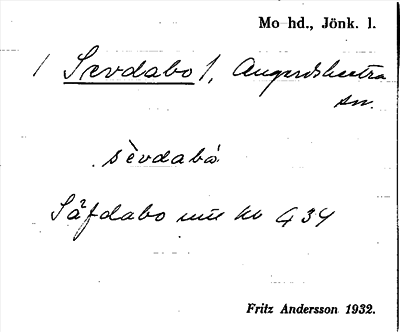 Mo hd., Jönk. l.
/ Sevdabo /, Angerdshestra
sn.
sèvdabò
Säfdabo
434
Fritz Andersson 1932.